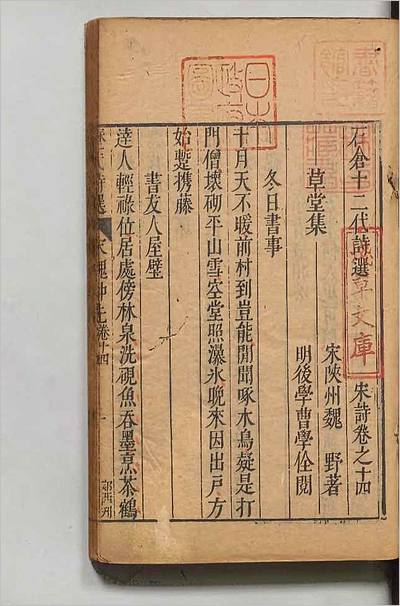 石倉十二代詩選
宋詩卷之十四
草堂集
宋陝州魏 野著
明後學曹學佺閱
冬日書事
十月天不暖前村到豈能閒聞啄木鳥疑是打
門僧壞砌平山雪空堂照瀑氷晚來因出戸方
始蹔携藤
書友人屋壁
達人輕祿位居處傍林泉洗硯魚吞墨烹茶鶴
日本
文庫